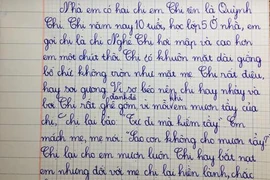 Nhà em có hai chị em. Chị tên là Quỳnh
Chi. Chị năm nay 10 tuổi, học lớp 5. Ở nhà, em
gọi chị là chị Nghé. Chị hơi mập và cao hơn
em một chút thôi. Chị có khuôn mặt dài giống
bố chứ không tròn như mặt mẹ. Chị rất điệu,
hay soi gương. Vì sợ béo nên chị hay nhảy và
bơi. Chị rất ghê gớm, vì mỗi khi em mượn tẩy của
đanh đá
chị, chị lại bảo: "Tự đi mà kiếm tẩy". Em
mách mẹ, mẹ nói: "Sao con không cho mượn tẩy?"
Chị lại cho em mượn luôn. Chị hay bắt nạt
em nhưng đối với mẹ chị lại hiền lành, chắc